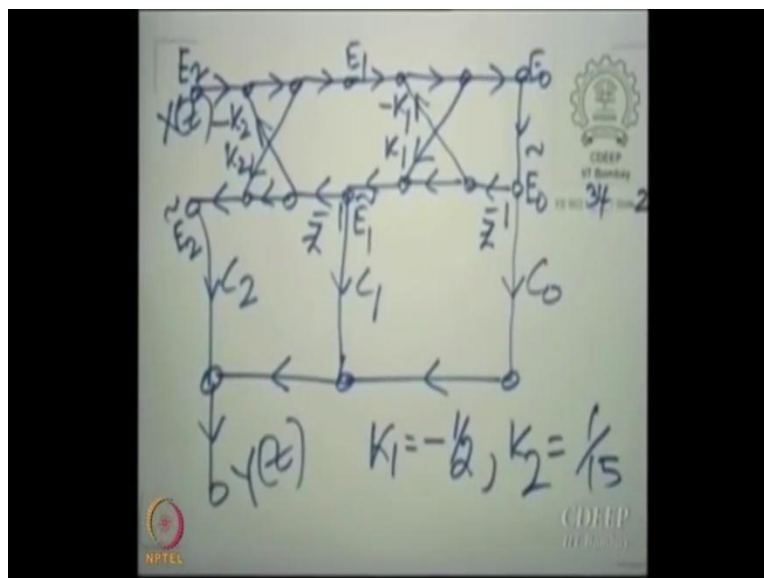 E₂ E₁ E₀
X(z) -K₂ -K₁
K₂ K₁
Ẽ₂ z⁻¹ Ẽ₁ z⁻¹ Ẽ₀
C₂ C₁ C₀
Y(z) K₁ = -1/2, K₂ = 1/15
CDEEP
IIT Bombay
34 2
CDEEP
IIT Bombay
NPTEL